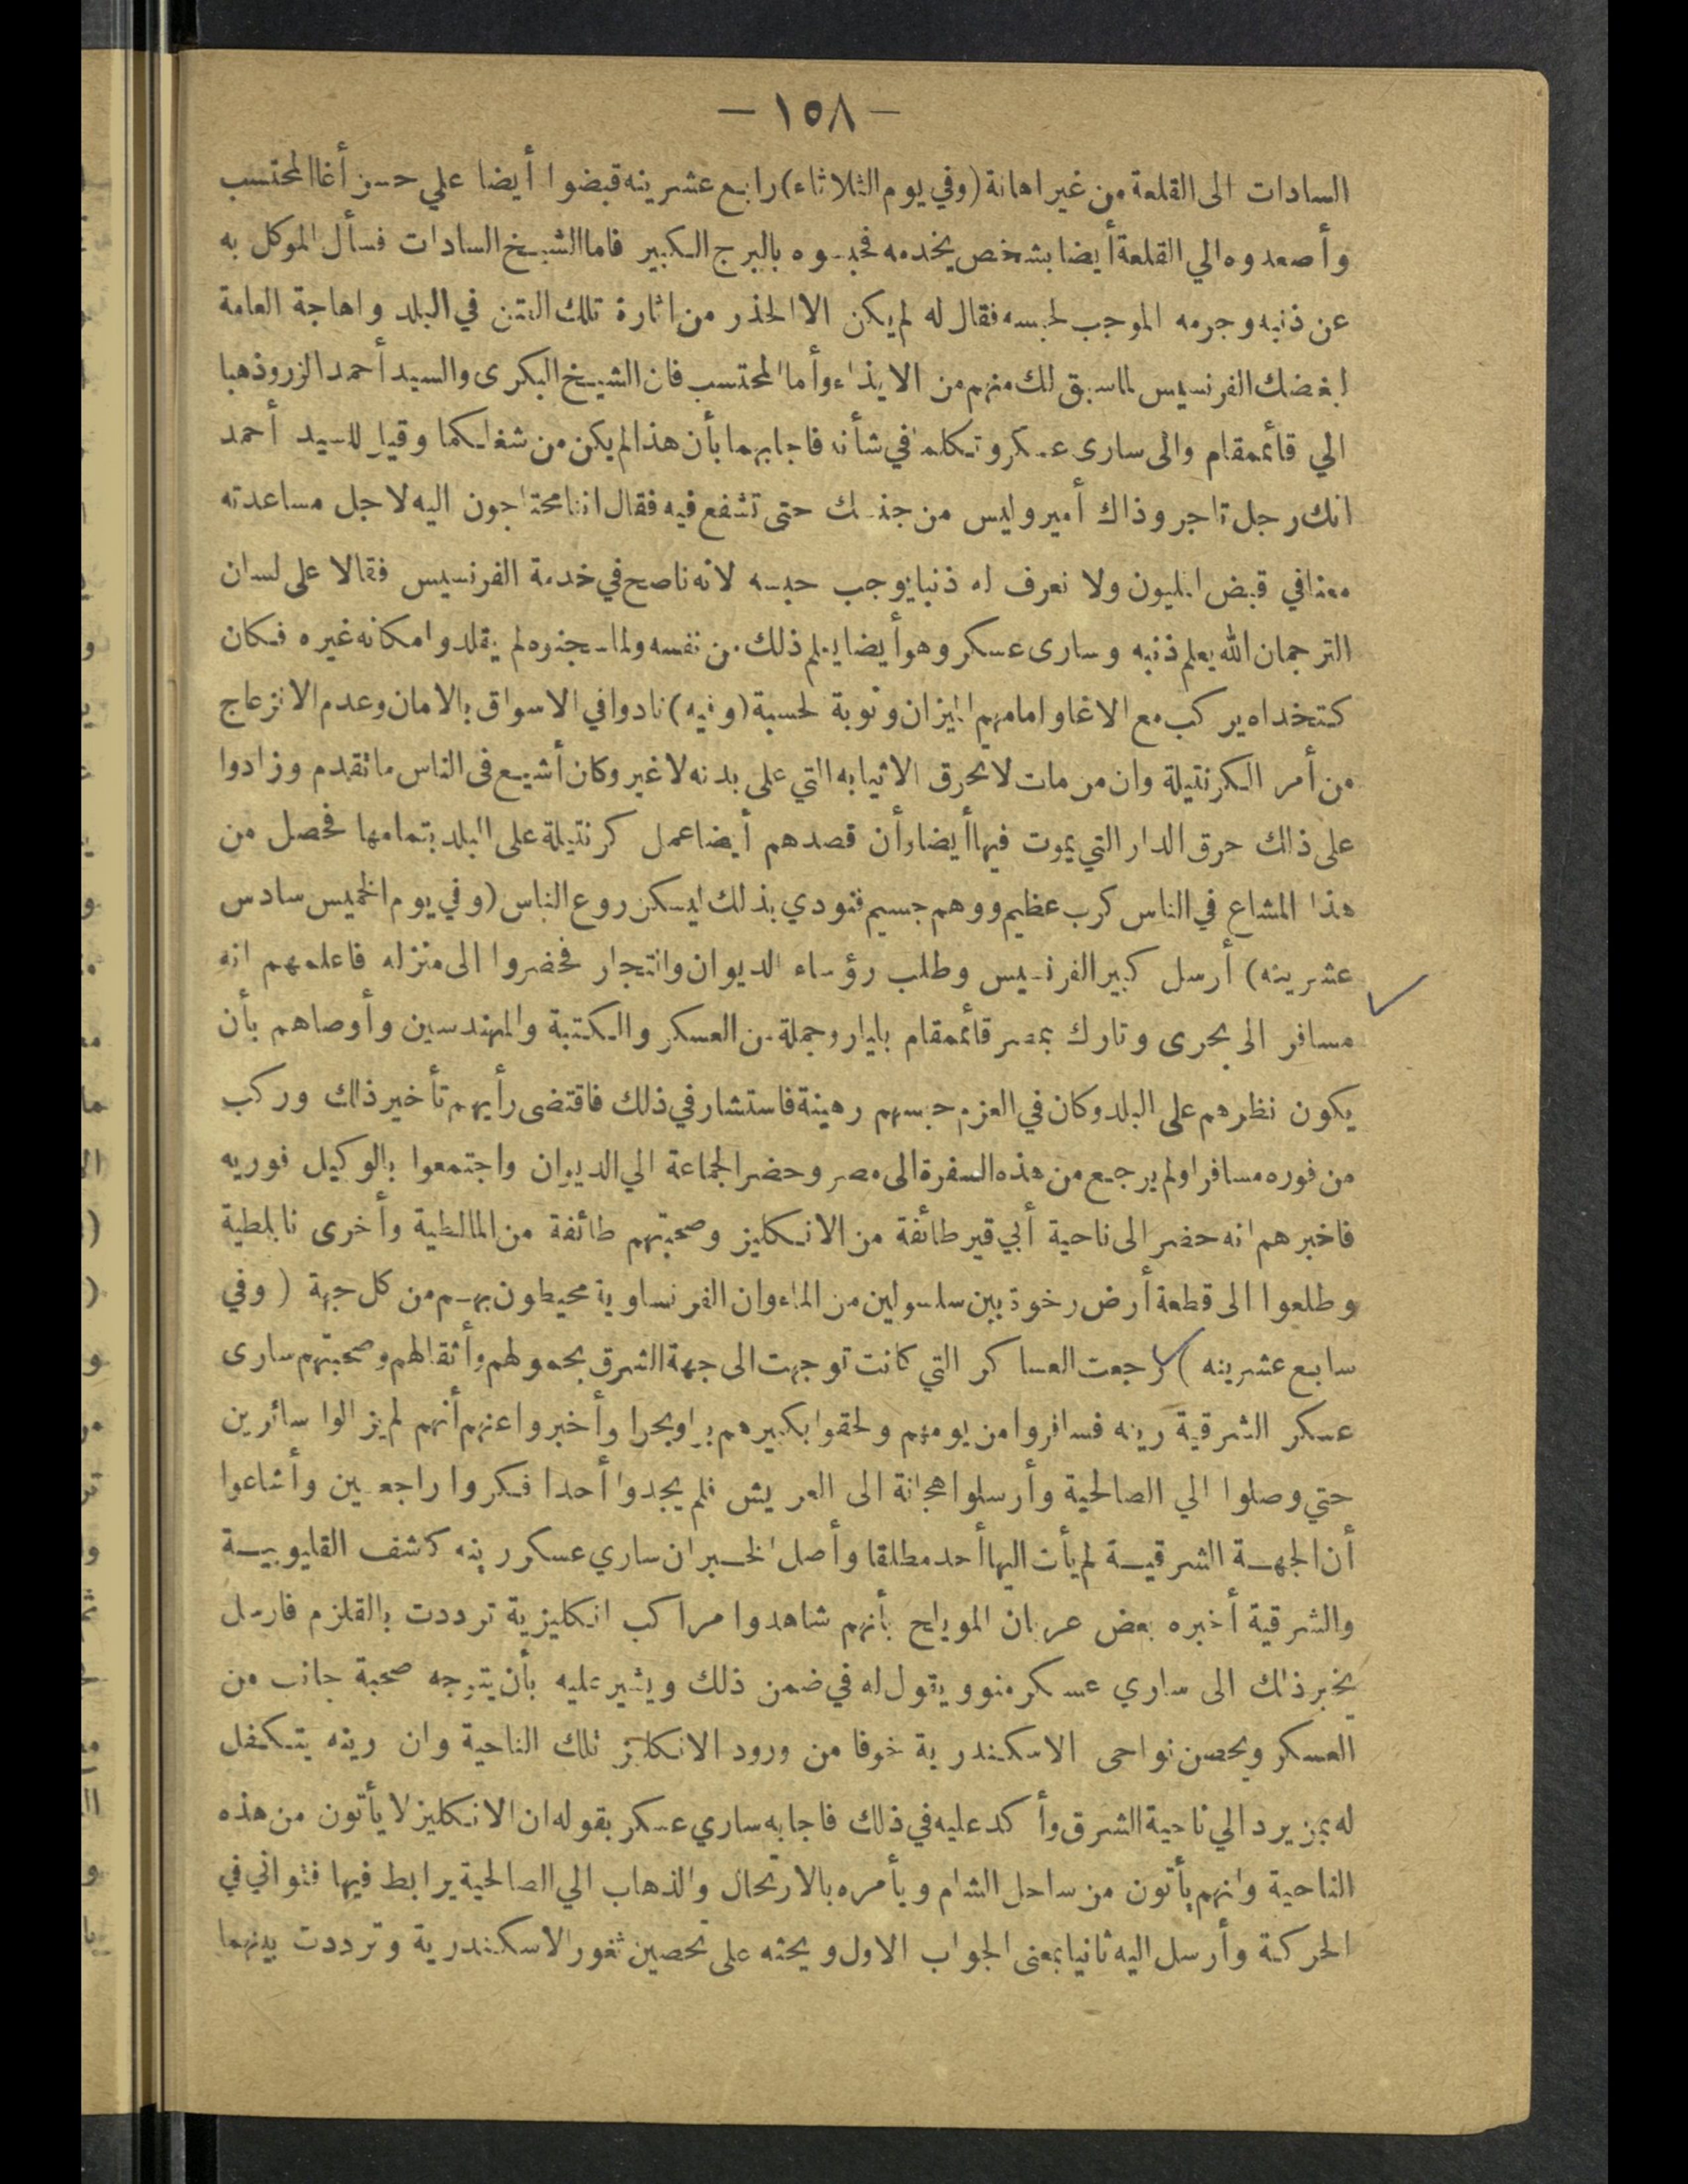 — ١٥٨ —
السادات الى القلعة من غير اهانة (وفي يوم الثلاثاء) رابع عشرينه قبضوا أيضا علي حسن أغا المحتسب
وأصعدوه الي القلعة أيضا بشخص يخدمه فحبسوه بالبرج الكبير فاما الشيخ السادات فسأل الموكل به
عن ذنبه وجرمه الموجب لحبسه فقال له لم يكن الا الحذر من اثارة تلك الفتن في البلد واهاجة العامة
لبغضك الفرنسيس لما سبق لك منهم من الايذاء وأما المحتسب فان الشيخ البكرى والسيد أحمد الزرو ذهبا
الي قائمقام والى سارى عسكر وتكلما في شأنه فاجابهما بأن هذا لم يكن من شغلكما وقيل للسيد أحمد
انك رجل تاجر وذاك أمير وليس من جنسك حتى تشفع فيه فقال اننا محتاجون اليه لاجل مساعدته
معنا في قبض المليون ولا نعرف له ذنبا يوجب حبسه لانه ناصح في خدمة الفرنسيس فقالا على لسان
الترجمان الله يعلم ذنبه وسارى عسكر وهو أيضا يعلم ذلك من نفسه ولما سجنوه لم يقلدوا مكانه غيره فكان
كتخداه يركب مع الاغا وامامهم الميزان ونوبة لحسبة (وفيه) نادوا في الاسواق بالامان وعدم الانزعاج
من أمر الكرنتيلة وان من مات لا يحرق الا ثيابه التي على بدنه لا غير وكان أشيع فى الناس ما تقدم وزادوا
على ذلك حرق الدار التي يموت فيها أيضا وأن قصدهم أيضا عمل كرنتيلة على البلد بتمامها فحصل من
هذا المشاع في الناس كرب عظيم ووهم جسيم فنودي بذلك ليسكن روع الناس (وفي يوم الخميس سادس
عشرينه) أرسل كبير الفرنسيس وطلب رؤساء الديوان والتجار فحضروا الى منزله فاعلمهم انه
مسافر الى بحرى وتارك بمصر قائمقام بليار وجملة من العسكر والكتبة والمهندسين وأوصاهم بأن
يكون نظرهم على البلد وكان في العزم حبسهم رهينة فاستشار في ذلك فاقتضى رأيهم تأخير ذلك وركب
من فوره مسافرا ولم يرجع من هذه السفرة الى مصر وحضر الجماعة الي الديوان واجتمعوا بالوكيل فوريه
فاخبرهم انه حضر الى ناحية أبي قير طائفة من الانكليز وصحبتهم طائفة من المالطية وأخرى نابلطية
وطلعوا الى قطعة أرض رخوة بين سلسولين من الماء وان الفرنساوية محيطون بهم من كل جهة (وفي
سابع عشرينه) رجعت العساكر التي كانت توجهت الى جهة الشرق بحمولهم وأثقالهم وصحبتهم سارى
عسكر الشرقية رينه فسافروا من يومهم ولحقوا بكبيرهم برا وبحرا وأخبروا عنهم أنهم لم يزالوا سائرين
حتي وصلوا الي الصالحية وأرسلوا هجانة الى العريش فلم يجدوا أحدا فكروا راجعين وأشاعوا
أن الجهة الشرقية لم يأت اليها أحد مطلقا وأصل الخبر ان ساري عسكر رينه كاشف القليوبية
والشرقية أخبره بعض عربان المويلح بأنهم شاهدوا مراكب انكليزية ترددت بالقلزم فارسل
يخبر ذلك الى ساري عسكر منو ويقول له في ضمن ذلك ويشير عليه بأن يتوجه صحبة جانب من
العسكر ويحصن نواحى الاسكندرية خوفا من ورود الانكليز تلك الناحية وان رينه يتكفل
له بمن يرد الي ناحية الشرق وأكد عليه في ذلك فاجابه ساري عسكر بقوله ان الانكليز لا يأتون من هذه
الناحية وانهم يأتون من ساحل الشام ويأمره بالارتحال والذهاب الي الصالحية يرابط فيها فتواني في
الحركة وأرسل اليه ثانيا بمعنى الجواب الاول ويحثه على تحصين ثغور الاسكندرية وترددت بينهما